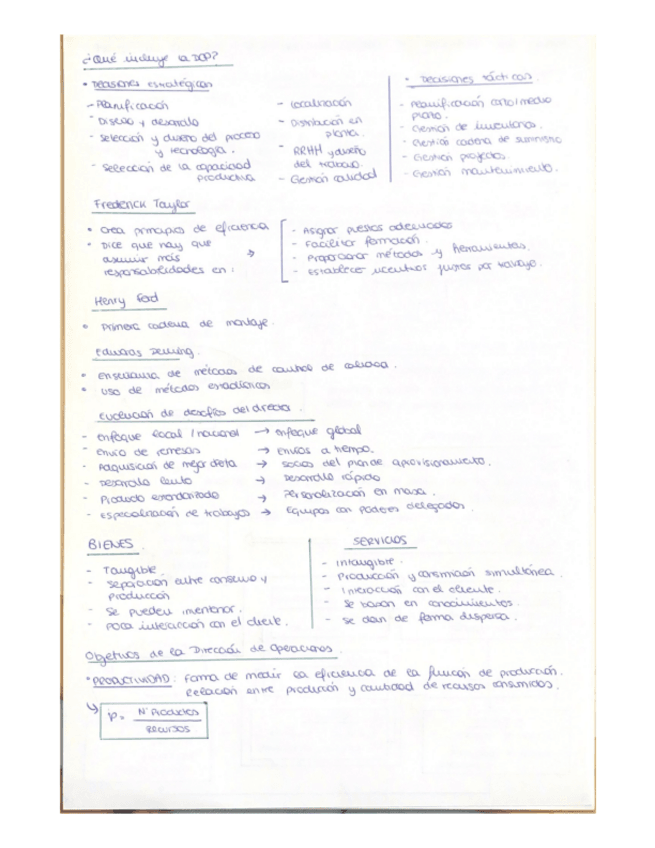 ¿Qué incluye la DOP?
• Decisiones estratégicas
- Planificación
- Diseño y desarrollo
- Selección y diseño del proceso
y tecnología.
- Selección de la capacidad
productiva
- Localización
- Distribución en
planta.
- RRHH y diseño
del trabajo.
- Gestión calidad
• Decisiones tácticas
- Planificación corto/medio
plazo.
- Gestión de inventarios.
- Gestión cadena de suministro
- Gestión proyectos.
- Gestión mantenimiento.
Frederick Taylor
• Crea principios de eficiencia
• Dice que hay que
asumir más
responsabilidades en:
- Asignar puestos adecuados
- Facilitar formación.
- Proporcionar métodos y herramientas.
- Establecer incentivos justos por trabajo.
Henry Ford
• Primera cadena de montaje.
Edwards Deming.
• Enseñanza de métodos de control de calidad.
• Uso de métodos estadísticos
Evolución de desafíos del director.
- Enfoque local / nacional → enfoque global
- Envío de remesas → Envíos a tiempo.
- Adquisición de mejor oferta → socios del plan de aprovisionamiento.
- Desarrollo lento → Desarrollo rápido
- Producto estandarizado → Personalización en masa.
- Especialización de trabajos → Equipos con poderes delegados.
BIENES
- Tangible.
- Separación entre consumo y
producción
- Se pueden inventariar.
- Poca interacción con el cliente.
SERVICIOS
- Intangible.
- Producción y consumición simultánea.
- Interacción con el cliente.
- Se basan en conocimientos.
- Se dan de forma dispersa.
Objetivos de la Dirección de Operaciones.
• PRODUCTIVIDAD: forma de medir la eficiencia de la función de producción.
Relación entre producción y cantidad de recursos consumidos.
P = Nº Productos
Recursos